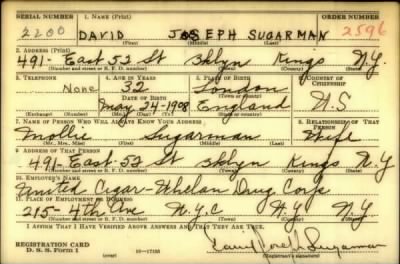 SERIAL NUMBER 1. NAME (Print) ORDER NUMBER
2200 DAVID JOSEPH SUGARMAN 2596
(First) (Middle) (Last)
2. ADDRESS (Print)
491- East 52 St Bklyn Kings N.Y.
(Number and street or R. F. D. number) (Town) (County) (State)
3. TELEPHONE 4. AGE IN YEARS 5. PLACE OF BIRTH 6. COUNTRY OF CITIZENSHIP
None 32 London
DATE OF BIRTH
May 24-1908 England U.S
(Exchange) (Number) (Mo.) (Day) (Yr.) (State or country)
7. NAME OF PERSON WHO WILL ALWAYS KNOW YOUR ADDRESS 8. RELATIONSHIP OF THAT PERSON
Mollie Sugarman Wife
(Mr., Mrs., Miss) (First) (Middle) (Last)
9. ADDRESS OF THAT PERSON
491- East- 52 St Bklyn Kings N.Y
(Number and street or R. F. D. number) (Town) (County) (State)
10. EMPLOYER'S NAME
United Cigar-Whelan Drug Corp
11. PLACE OF EMPLOYMENT OR BUSINESS
215- 4th Ave N.Y.C N.Y NY
(Number and street or R. F. D. number) (Town) (County) (State)
I AFFIRM THAT I HAVE VERIFIED ABOVE ANSWERS AND THAT THEY ARE TRUE.
REGISTRATION CARD
D. S. S. FORM 1 (over) 16-17105 David Joseph Sugarman
(Registrant's signature)